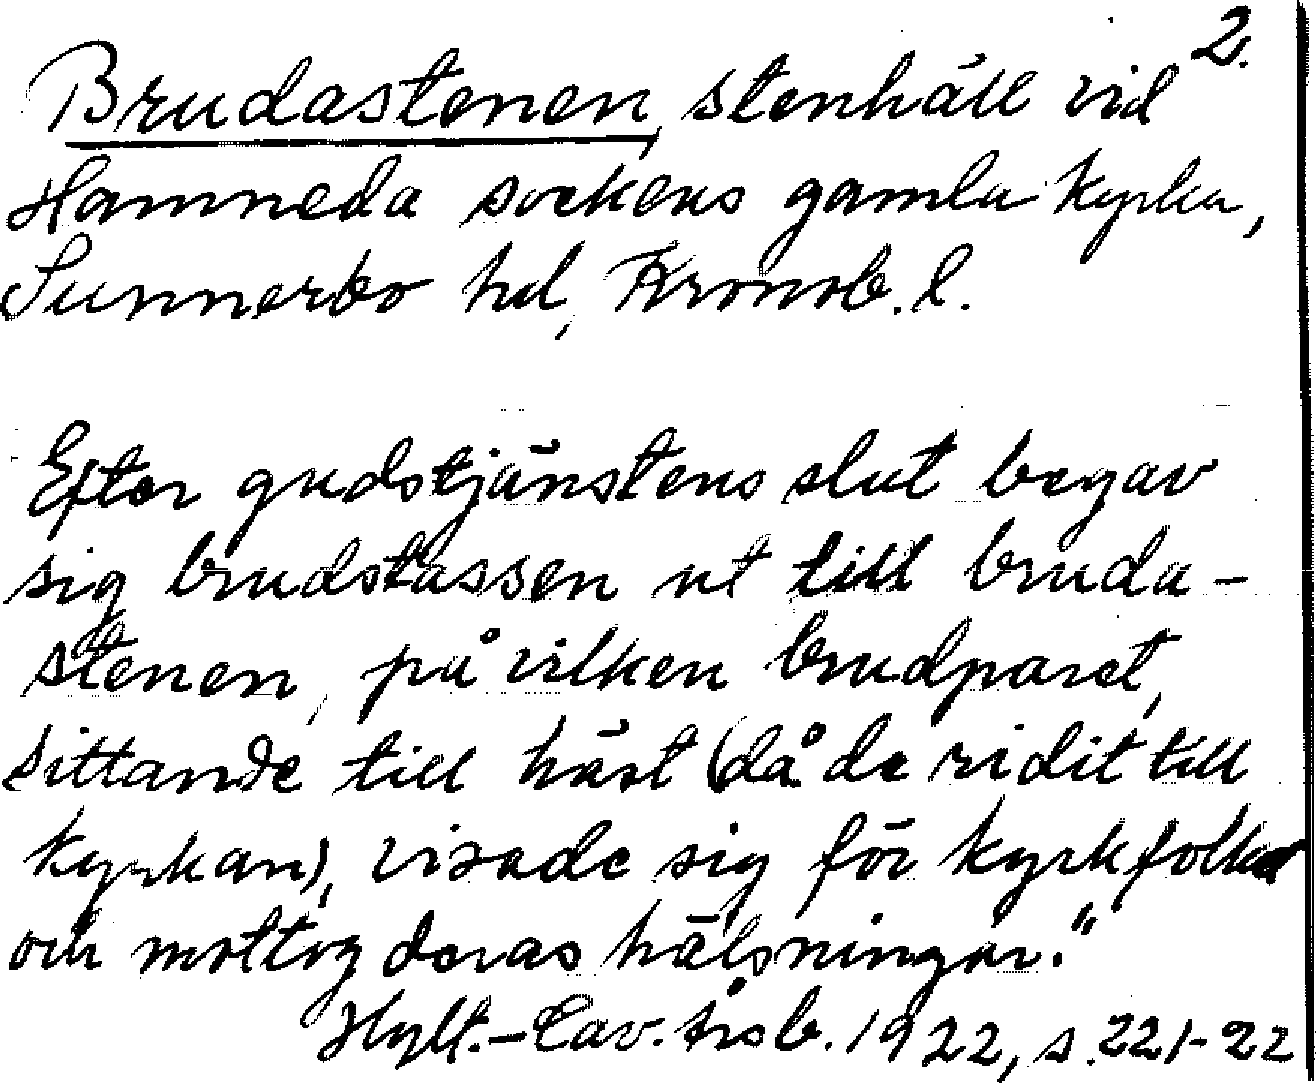 2.
Brudastenen, stenhäll vid
Hamneda sockens gamla kyrka,
Sunnerbo hd, Kronob. l.
Efter gudstjänstens slut begav
sig brudstassen ut till bruda-
stenen, på vilken brudparet,
sittande till häst (då de ridit till
kyrkan), visade sig för kyrkfolket
och mottog deras hälsningar."
Hylt.-Cav. årsb. 1922, s. 221-22